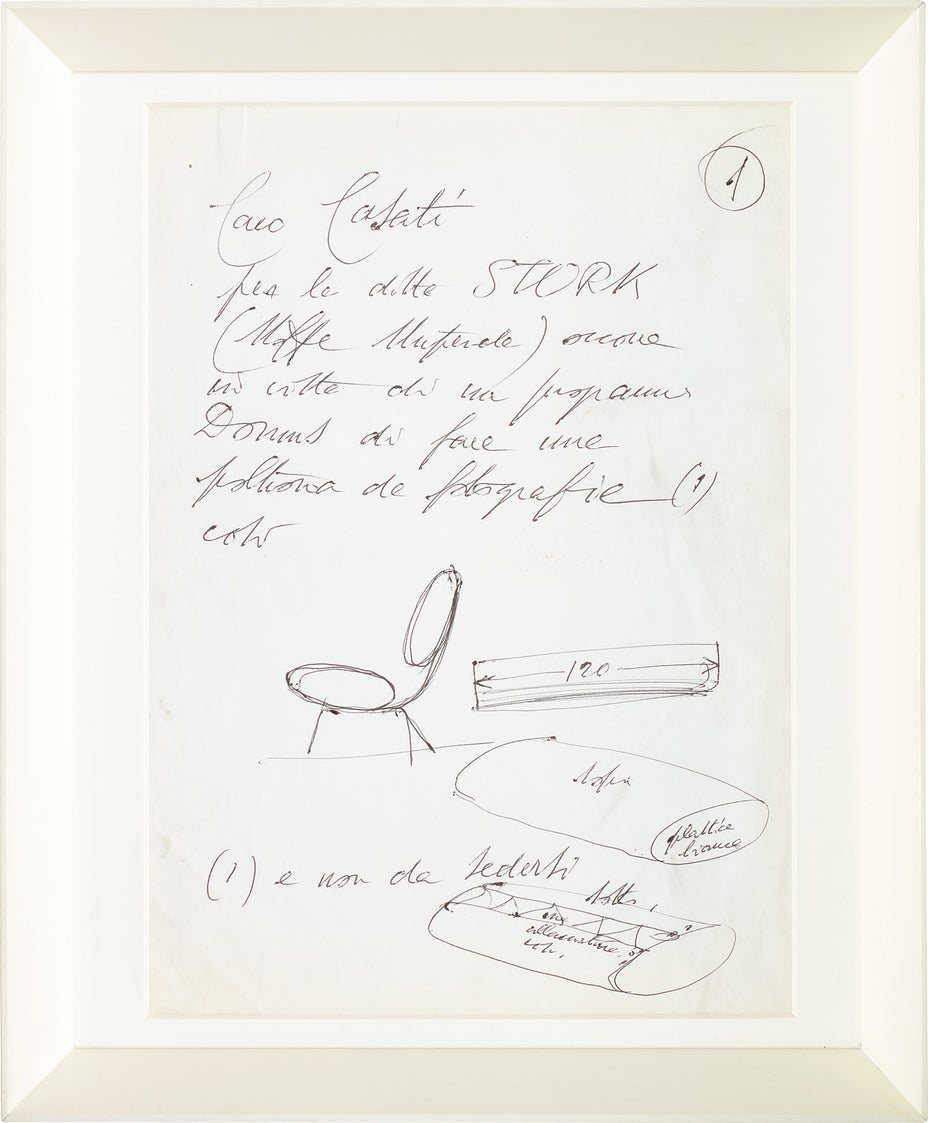 1
Caro Casati
per la ditta STORK
( ) occorre
in vista di un programma
Domus di fare una
poltrona da fotografia (1)
così
120
sopra
plastica
bianca
(1) e non da sedersi
sotto,
una
così.